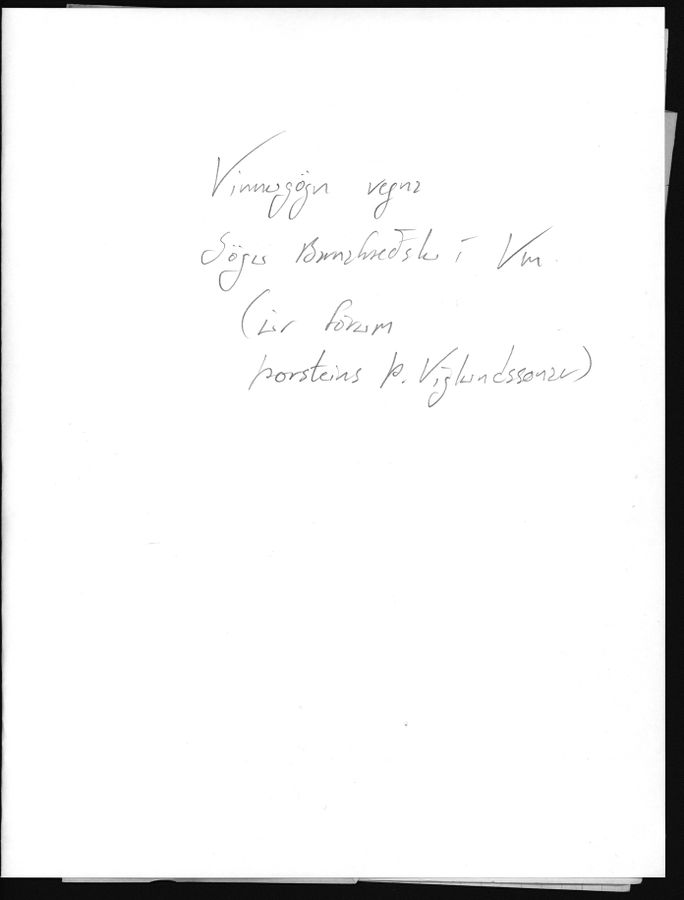 Vinnugögn vegna
Sögu Barnafræðslu í Vm
(úr fórum
Þorsteins Þ. Víglundssonar)